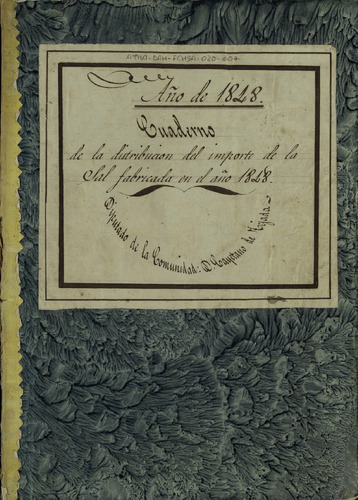 ATHA-DAH-FCHSA-020-007
Año de 1848.
Cuaderno
de la distribucion del importe de la
Sal fabricada en el año 1848.
Diputado de la Comunidad: D. Cayetano de Tejada